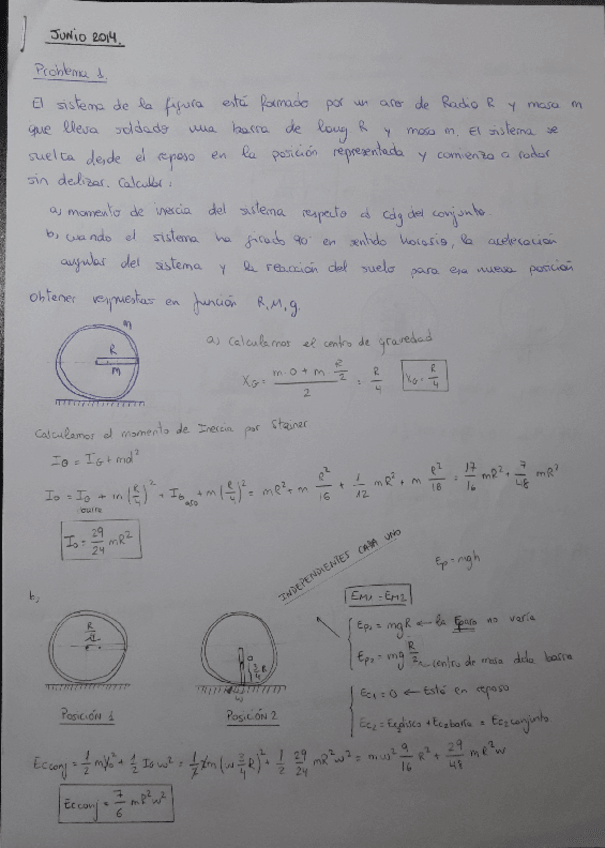 JUNIO 2014.
Problema 1.
El sistema de la figura está formado por un aro de Radio R y masa m
que lleva soldado una barra de long R y masa m. El sistema se
suelta desde el reposo en la posición representada y comienza a rodar
sin deslizar. Calcular:
a) momento de inercia del sistema respecto al cdg del conjunto.
b) cuando el sistema ha girado 90° en sentido horario, la aceleración
angular del sistema y la reacción del suelo para esa nueva posición
Obtener respuestas en función R, M, g.
m
R
M
a) Calculamos el centro de gravedad
X_G = (m·0 + m·R/2)/2 = R/4   X_G = R/4
Calculamos el momento de Inercia por Steiner
I_O = I_G + md²
I_O = I_O barra + m(R/4)² + I_O aro + m(R/4)² = mR² + m R²/16 + 1/12 mR² + m R²/18 = 17/16 mR² + 7/48 mR²
I_O = 29/24 mR²
INDEPENDIENTES CADA UNO
Ep = mgh
b)
E_M1 = E_M2
Ep₁ = mgR ← la no varía
Ep₂ = mg R/2 ← centro de masa de la barra
Ec₁ = 0 ← Está en reposo
Ec₂ = Ec₂disco + Ec₂barra = Ec₂conjunto
R/4
3/4 R
Posición 1
Posición 2
Ec conj = 1/2 m v₀² + 1/2 I₀ω² = 1/2 2m (ω 3/4 R)² + 1/2 29/24 mR²ω² = mω² 9/16 R² + 29/48 mR²ω
Ec conj = 7/6 mR²ω²